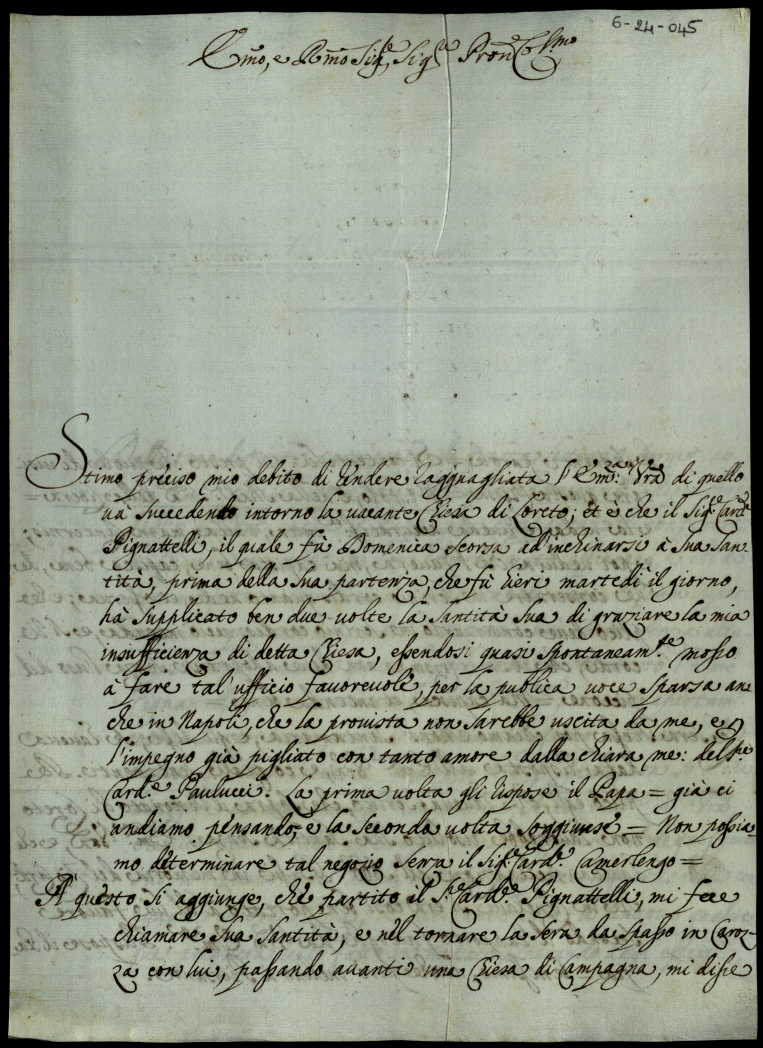 6-24-045
Emo, e Rmo Sig.re, Sig.re Pron.e Col.mo
Stimo preciso mio debito di rendere ragguagliata l'Em.za Vra di quello
và succedendo intorno la vacante Chiesa di Loreto; et è che il Sig.r Card.e
Pignattelli, il quale fù Domenica scorsa ad inchinarsi à Sua San-
tità, prima della sua partenza, che fù hieri martedì il giorno,
hà supplicato ben due volte la Santità Sua di graziare la mia
insufficienza di detta Chiesa, essendosi quasi spontaneam.te mosso
à fare tal'ufficio favorevole, per la publica voce sparsa an-
che in Napoli, che la provista non sarebbe uscita da me, e p
l'impegno già pigliato con tanto amore dalla chiara me: del Sr.
Card.e Paulucci. La prima volta gli rispose il Papa = già ci
andiamo pensando, e la seconda volta soggiunse = Non possia-
mo determinare tal negozio senza il Sig.r Card.e Camerlengo =
A questo si aggiunge, che partito il S.r Card.e Pignattelli, mi fece
chiamare Sua Santità, e nel tornare la sera da spasso in Caroz-
za con lui, passando avanti una Chiesa di Campagna, mi disse